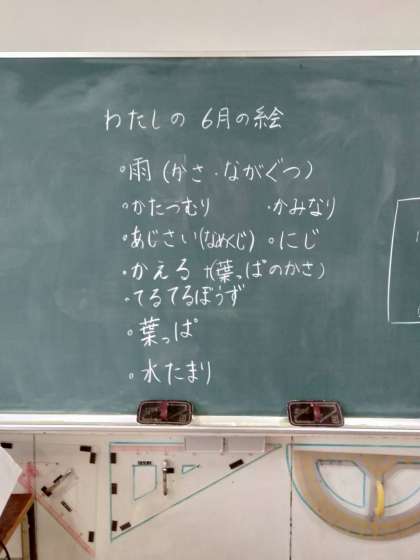 わたしの 6月の絵
・雨(かさ・ながぐつ)
・かたつむり ・かみなり
・あじさい(なめくじ) ・にじ
・かえる +(葉っぱのかさ)
・てるてるぼうず
・葉っぱ
・水たまり